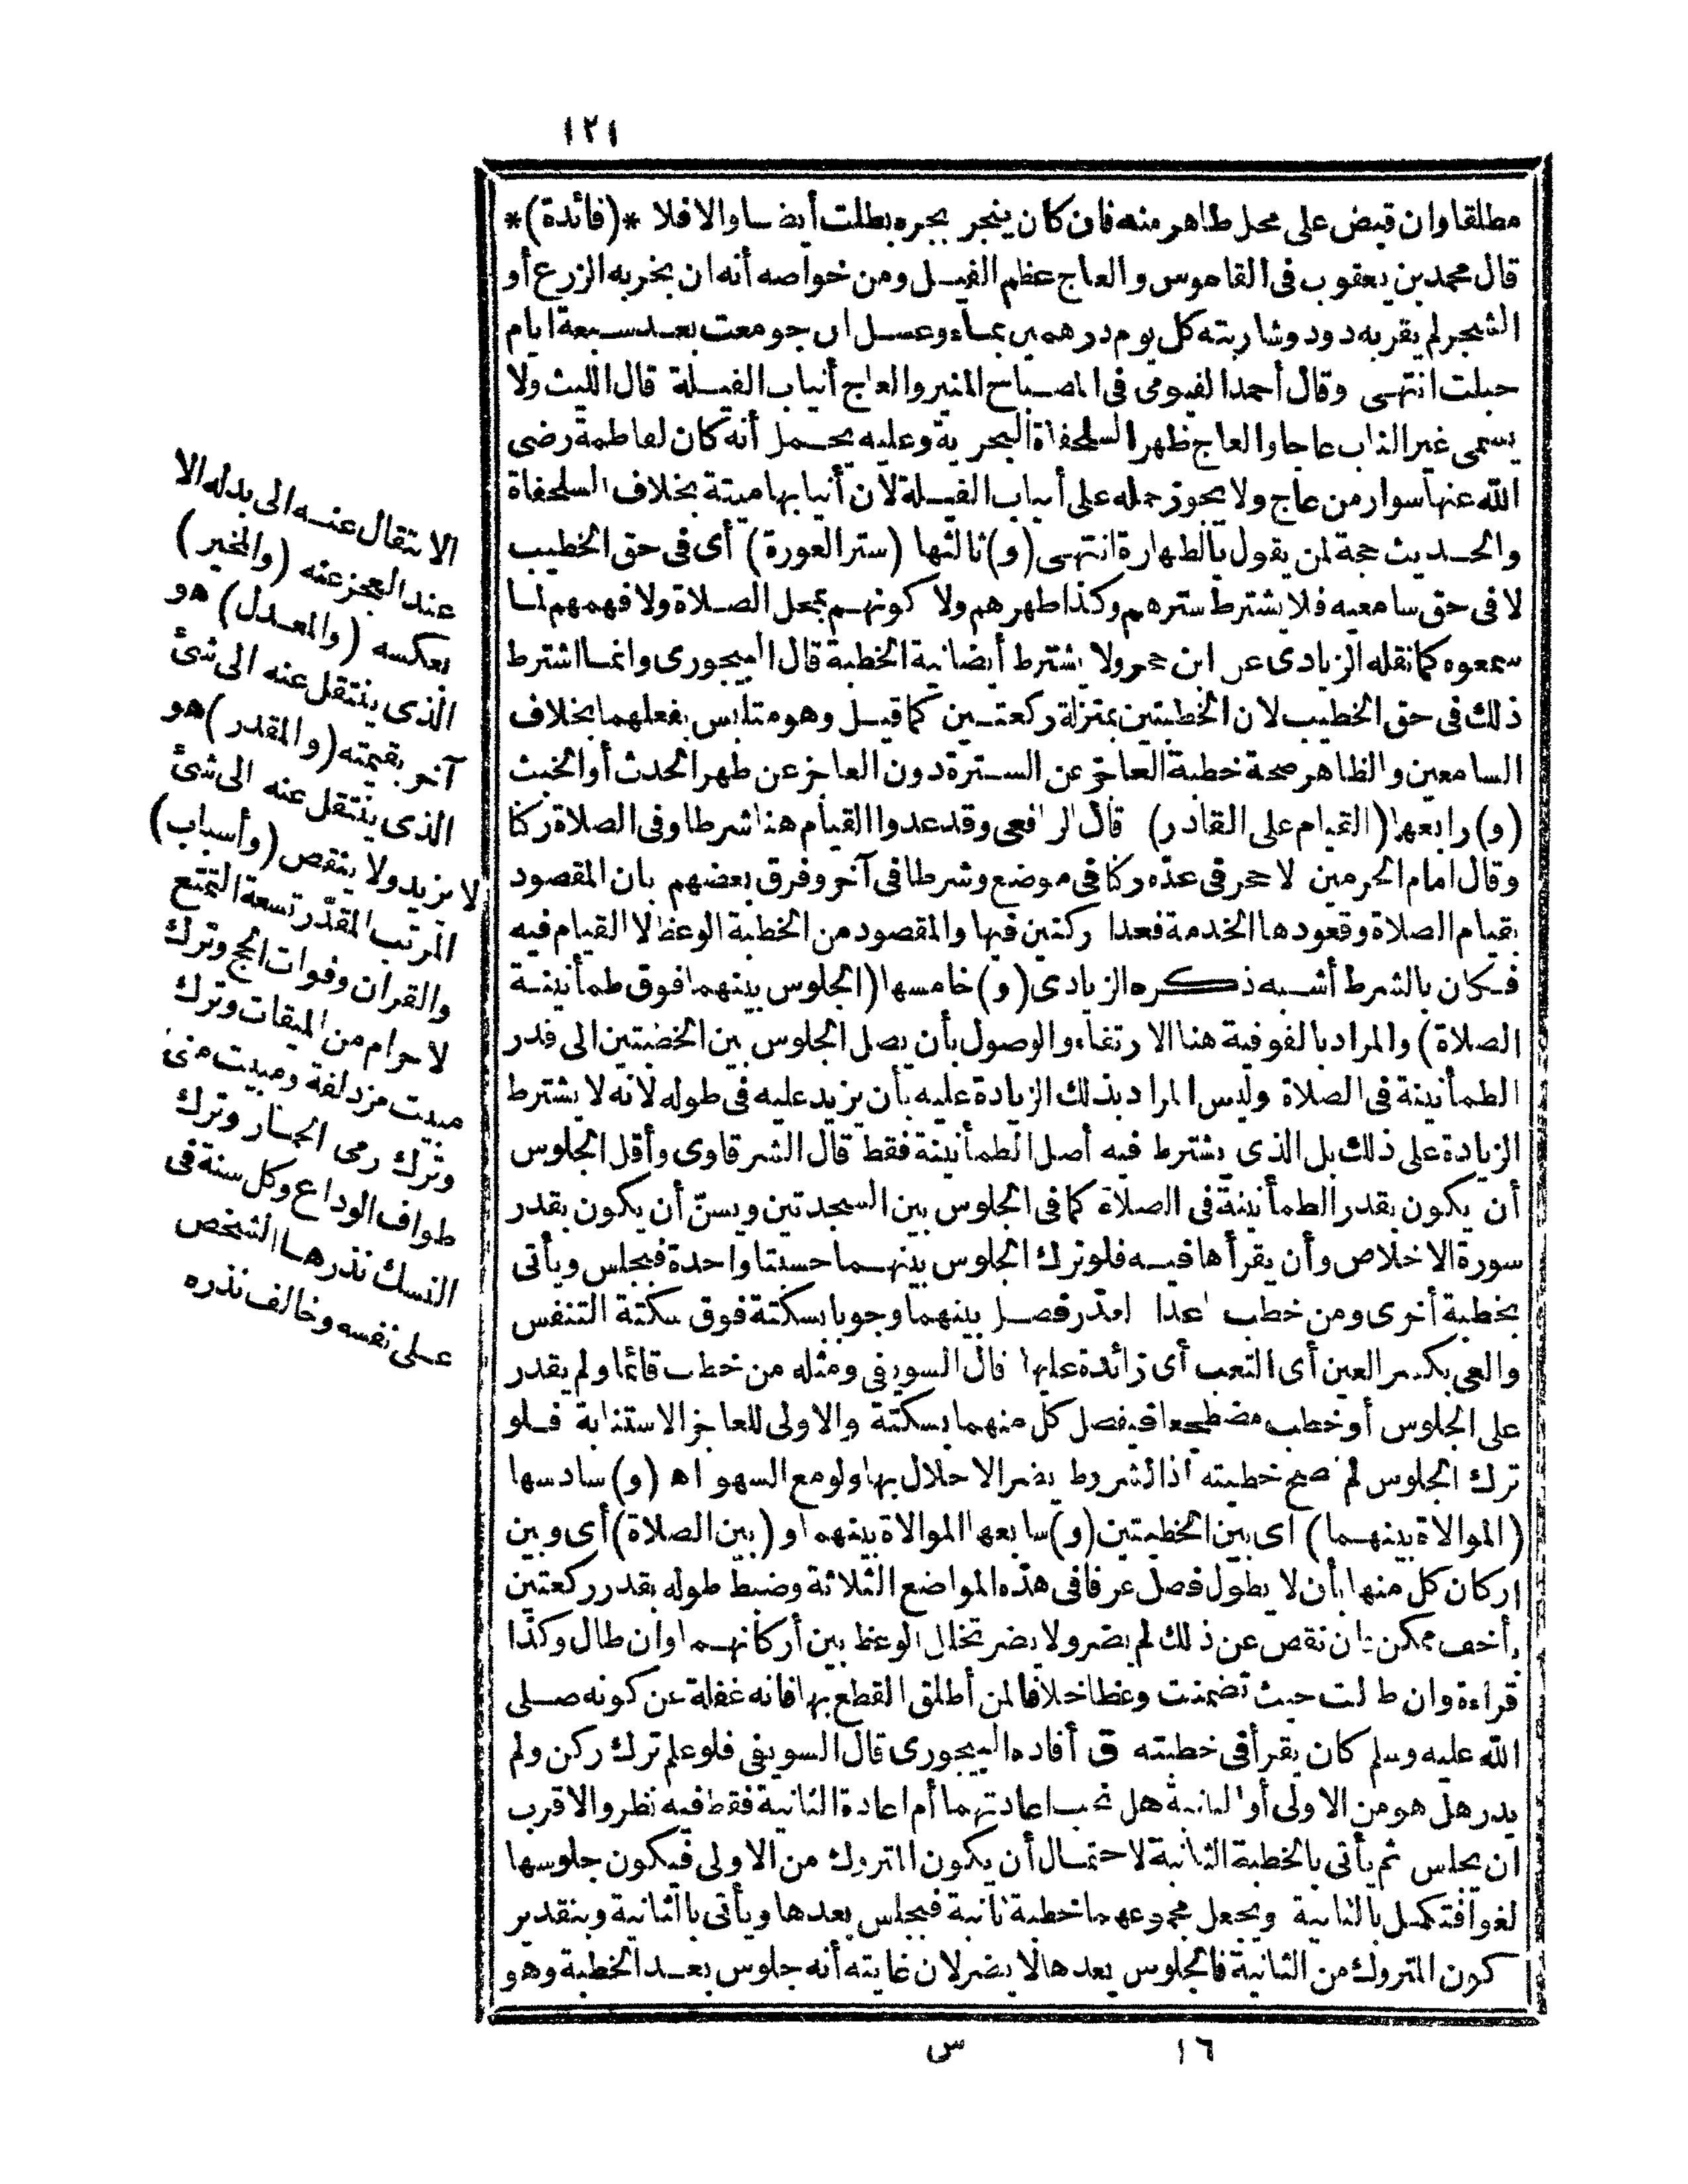 ١٢١
مطلقا وان قبض على محل طاهر منه فان كان ينجر بجره بطلت أيضا والا فلا *(فائدة)*
قال محمد بن يعقوب في القاموس والعاج عظم الفيل ومن خواصه أنه ان بخر به الزرع أو
الشجر لم يقربه دود وشاربته كل يوم درهمين بماء وعسل ان جومعت بعد سبعة ايام
حبلت انتهى وقال أحمد الفيومى فى المصباح المنير والعاج أنياب الفيلة قال الليث ولا
يسمى غير الناب عاجا والعاج ظهر السلحفاة البحرية وعليه يحمل أنه كان لفاطمة رضى
الله عنها سوار من عاج ولا يجوز حمله على أنياب الفيلة لان أنيابها ميتة بخلاف السلحفاة
والحديث حجة لمن يقول بالطهارة انتهى (و) ثالثها (ستر العورة) أى فى حق الخطيب
لا فى حق سامعيه فلا يشترط سترهم وكذا طهرهم ولا كونهم بمحل الصلاة ولا فهمهم لما
سمعوه كما نقله الزيادى عن ابن حجر ولا يشترط أيضا نية الخطبة قال البيجورى وانما اشترط
ذلك فى حق الخطيب لان الخطبتين بمنزلة ركعتين كما قيل وهو متلبس بفعلهما بخلاف
السامعين والظاهر صحة خطبة العاجز عن السترة دون العاجز عن طهر الحدث أو الخبث
(و) رابعها (القيام على القادر) قال الرافعى وقد عدوا القيام هنا شرطا وفى الصلاة ركنا
وقال امام الحرمين لا حجر فى عدّه ركنا فى موضع وشرطا فى آخر وفرق بعضهم بان المقصود
بقيام الصلاة وقعودها الخدمة فعدا ركنين فيها والمقصود من الخطبة الوعظ لا القيام فيه
فكان بالشرط أشبه ذكره الزيادى (و) خامسها (الجلوس بينهما فوق طمأنينة
الصلاة) والمراد بالفوقية هنا الارتفاء والوصول بأن يصل الجلوس بين الخطبتين الى قدر
الطمأنينة فى الصلاة وليس المراد بذلك الزيادة عليه بأن يزيد عليه فى طوله لانه لا يشترط
الزيادة على ذلك بل الذى يشترط فيه أصل الطمأنينة فقط قال الشرقاوى وأقل الجلوس
أن يكون بقدر الطمأنينة فى الصلاة كما فى الجلوس بين السجدتين ويسنّ أن يكون بقدر
سورة الاخلاص وأن يقرأها فيه فلو ترك الجلوس بينهما حسبتا واحدة فيجلس ويأتى
بخطبة أخرى ومن خطب قاعدا لعذر فصل بينهما وجوبا بسكتة فوق سكتة التنفس
والعى بكسر العين أى التعب أى زائدة عليها قال السويفى ومثله من خطب قائما ولم يقدر
على الجلوس أو خطب مضطجعا فيفصل كل منهما بسكتة والاولى للعاجز الاستنابة فلو
ترك الجلوس لم تصح خطبته اذ الشروط يضر الاخلال بها ولو مع السهو اه (و) سادسها
(الموالاة بينهما) أى بين الخطبتين (و) سابعها الموالاة بينهما و (بين الصلاة) أى وبين
اركان كل منها بأن لا يطول فصل عرفا فى هذه المواضع الثلاثة وضبط طوله بقدر ركعتين
بأخف ممكن فان نقص عن ذلك لم يضر ولا يضر تخلل الوعظ بين أركانهما وان طال وكذا
قراءة وان طالت حيث تضمنت وعظا خلافا لمن أطلق القطع بها فانه غفلة عن كونه صلى
الله عليه وسلم كان يقرأ فى خطبته ق أفاده البيجورى قال السويفى فلو علم ترك ركن ولم
يدر هل هو من الاولى أو الثانية هل تجب اعادتهما أم اعادة الثانية فقط فيه نظر والاقرب
ان يجلس ثم يأتى بالخطبة الثانية لاحتمال أن يكون المتروك من الاولى فيكون جلوسها
لغوا فتكمل بالثانية ويجعل مجموعهما خطبة ثانية فيجلس بعدها ويأتى بالثانية وبتقدير
كون المتروك من الثانية فالجلوس بعدها لا يضر لان غايته أنه جلوس بعد الخطبة وهو
الانتقال عنه الى بدله الا
عند العجز عنه (والمخير)
بعكسه (والمعدل) هو
الذى ينتقل عنه الى شئ
آخر بقيمته (والمقدر) هو
الذى ينتقل عنه الى شئ
لا يزيد ولا ينقص (وأسباب)
المرتب المقدّر تسعة التمتع
والقران وفوات الحج وترك
لاحرام من الميقات وترك
مبيت مزدلفة ومبيت منى
وترك رمى الجمار وترك
طواف الوداع وكل سنة فى
النسك نذرها الشخص
على نفسه وخالف نذره
١٦ س